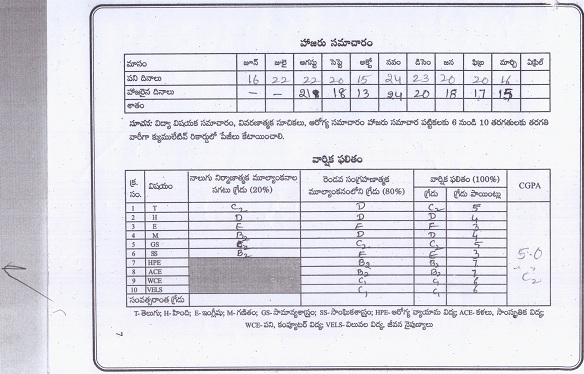 హాజరు సమాచారం
మాసం జూన్ జులై ఆగస్టు సెప్టె అక్టో నవం డిసెం జన ఫిబ్ర మార్చి ఏప్రిల్
పని దినాలు 16 22 22 20 15 24 23 20 20 16
హాజరైన దినాలు - - 21 18 13 24 20 18 17 15
శాతం
సూచన: విద్యా విషయక సమాచారం, వివరణాత్మక సూచికలు, ఆరోగ్య సమాచారం హాజరు సమాచార పట్టికలకు 6 నుండి 10 తరగతులకు తరగతి
వారీగా క్యుములేటివ్ రికార్డులో పేజీలు కేటాయించాలి.
వార్షిక ఫలితం
క్ర. సం. విషయం నాలుగు నిర్మాణాత్మక మూల్యాంకనాల సగటు గ్రేడు (20%) రెండవ సంగ్రహణాత్మక మూల్యాంకనంలోని గ్రేడు (80%) వార్షిక ఫలితం (100%) CGPA
గ్రేడు గ్రేడు పాయింట్లు
1 T C2 D C2 5
2 H D D D 4
3 E E E E 3
4 M B2 D D 4
5 GS C2 C2 5
6 SS B2 E E 3
7 HPE B2 B2 7
8 ACE B2 B2 7
9 WCE C1 C1 6
10 VELS C1 C1 6
5.0
C2
సంవత్సరాంత గ్రేడు
T- తెలుగు; H- హింది; E- ఇంగ్లీషు; M- గణితం; GS- సామాన్యశాస్త్రం; SS- సాంఘికశాస్త్రం; HPE- ఆరోగ్య వ్యాయామ విద్య; ACE- కళలు, సాంస్కృతిక విద్య;
WCE- పని, కంప్యూటర్ విద్య; VELS- విలువల విద్య, జీవన నైపుణ్యాలు